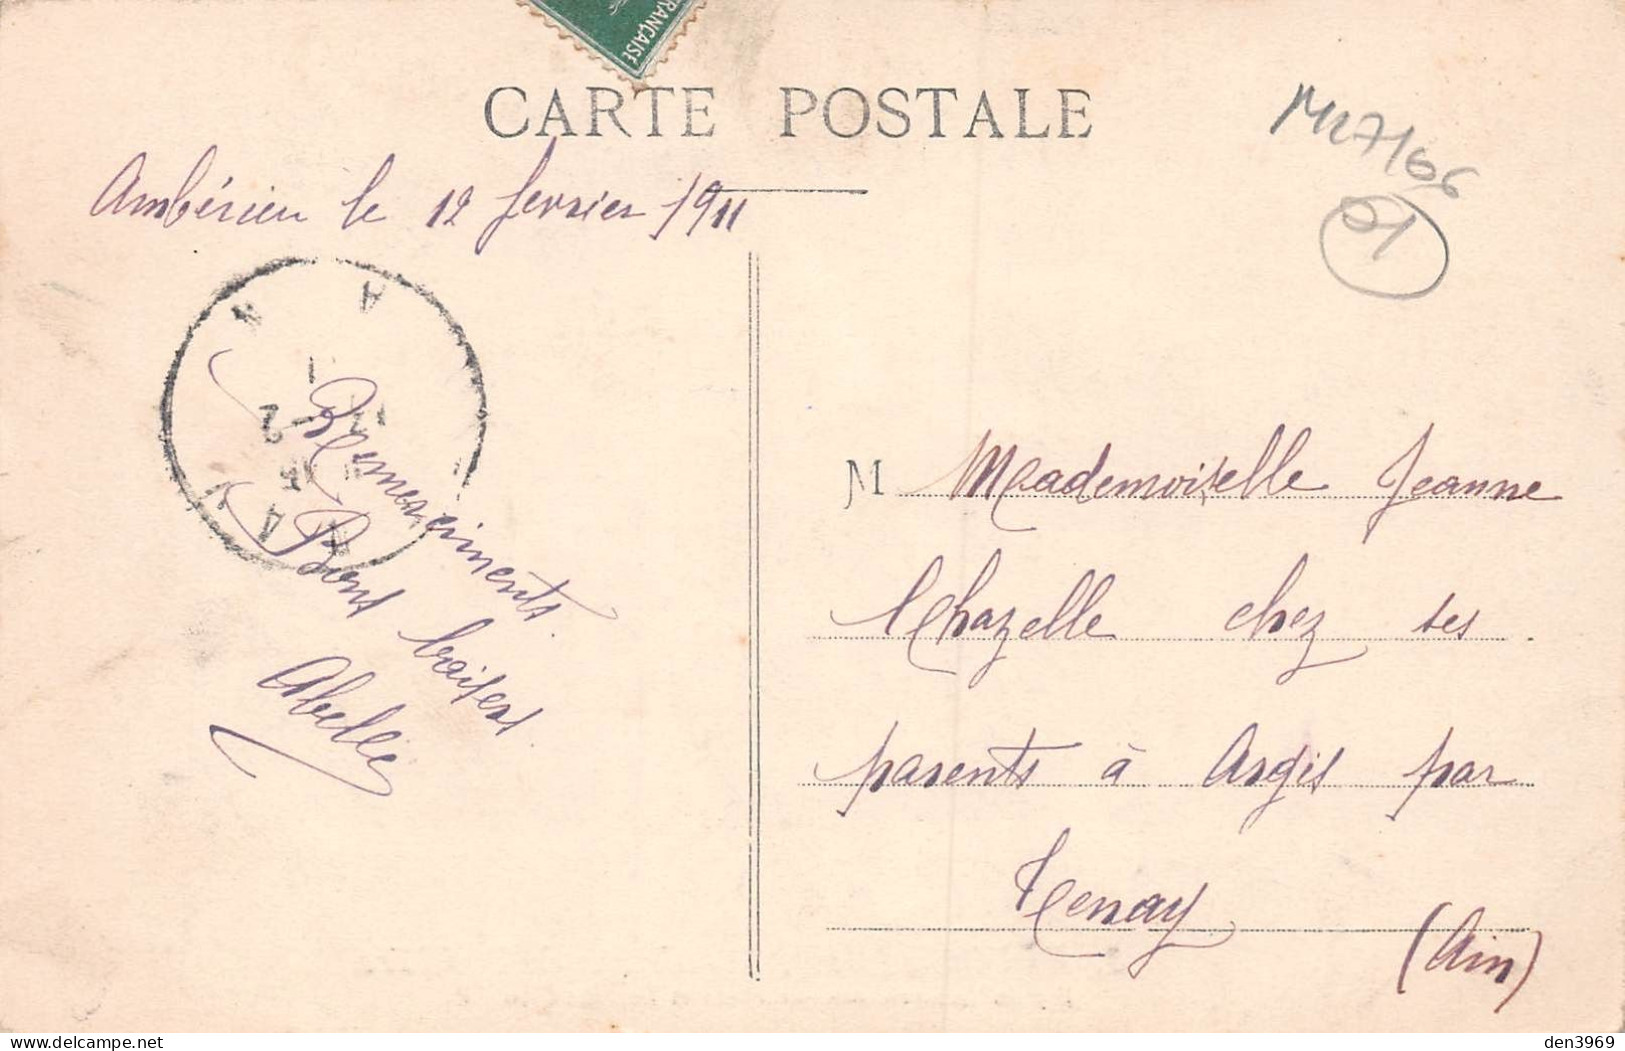 FRANÇAISE
CARTE POSTALE
M27166
01
Ambérieu le 12 fevrier 1911
Remerciments.
Bons baisers.
Abelle
M Meademoiselle Jeanne
Chazelle chez ses
parents à Argis par
Tenay
(Ain)
delcampe.net
den3969